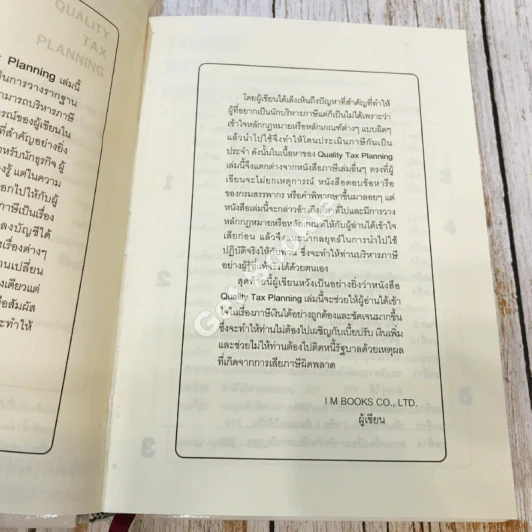 QUALITY
TAX
PLANNING
Planning เล่มนี้
เป็นการวางรากฐาน
ามารถบริหารภาษี
รณ์ของผู้เขียนใน
ที่สำคัญอย่างยิ่ง
หรับนักธุรกิจ ผู้
งรู้ แต่ในความ
อกไปให้กับผู้
ภาษีเป็นเรื่อง
ลงบัญชีได้
เรื่องต่างๆ
านเปลี่ยน
งเดียวแต่
อสัมผัส
ะทำให้
โดยผู้เขียนได้เล็งเห็นถึงปัญหาที่สำคัญที่ทำให้
ผู้ที่อยากเป็นนักบริหารภาษีแต่ก็เป็นไม่ได้เพราะว่า
เข้าใจหลักกฎหมายหรือหลักเกณฑ์ต่างๆ แบบผิดๆ
แล้วนำไปใช้จึงทำให้โดนประเมินภาษีกันเป็น
ประจำ ดังนั้นในเนื้อหาของ Quality Tax Planning
เล่มนี้จึงแตกต่างจากหนังสือภาษีเล่มอื่นๆ ตรงที่ผู้
เขียนจะไม่ยกเหตุการณ์ หนังสือตอบข้อหารือ
ของกรมสรรพากร หรือคำพิพากษาขึ้นมาลอยๆ แต่
หนังสือเล่มนี้จะกล่าวอ้างถึงที่มาที่ไปและมีการวาง
หลักกฎหมายหรือหลักเกณฑ์ให้กับผู้อ่านได้เข้าใจ
เสียก่อน แล้วจึงแนะนำกลยุทธ์ในการนำไปใช้
ปฏิบัติจริงให้กับท่าน ซึ่งจะทำให้ท่านบริหารภาษี
อย่างผู้รู้ที่แท้จริงได้ด้วยตนเอง
สุดท้ายนี้ผู้เขียนหวังเป็นอย่างยิ่งว่าหนังสือ
Quality Tax Planning เล่มนี้จะช่วยให้ผู้อ่านได้เข้า
ใจในเรื่องภาษีเงินได้อย่างถูกต้องและชัดเจนมากขึ้น
ซึ่งจะทำให้ท่านไม่ต้องไปเผชิญกับเบี้ยปรับ เงินเพิ่ม
และช่วยไม่ให้ท่านต้องไปติดหนี้รัฐบาลด้วยเหตุผล
ที่เกิดจากการเสียภาษีผิดพลาด
I M BOOKS CO., LTD.
ผู้เขียน